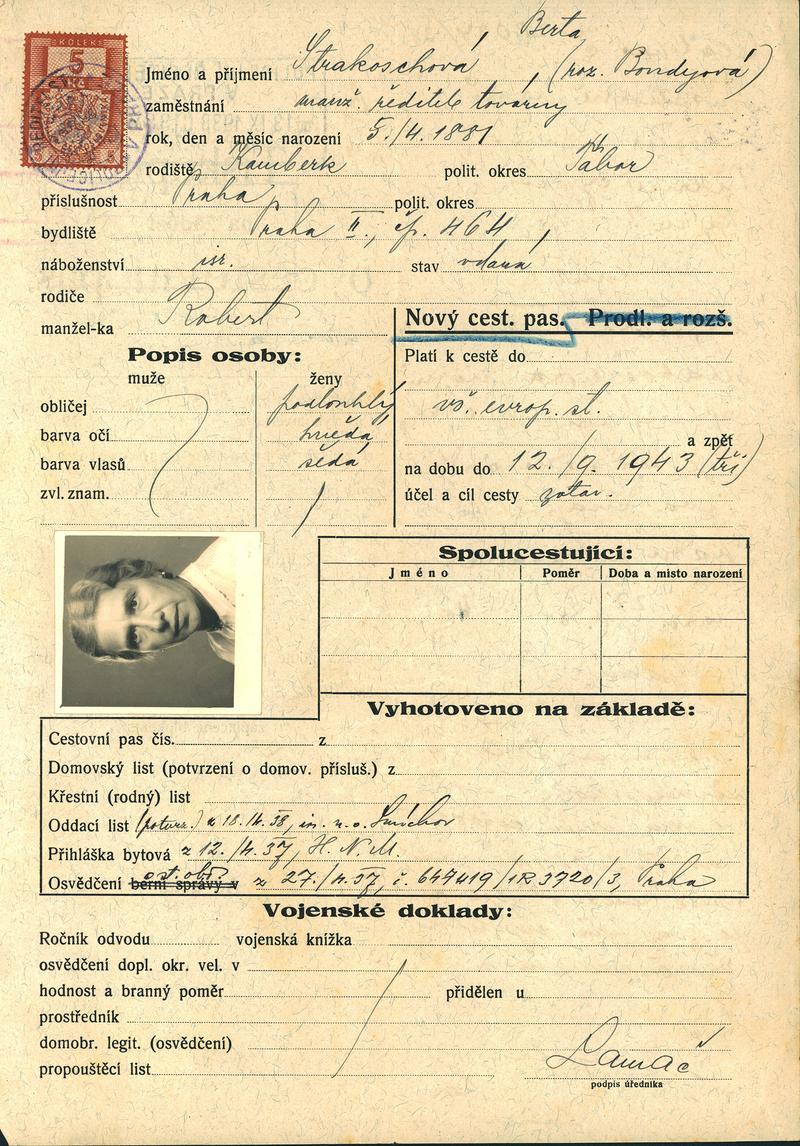 KOLEK
5
Berta
Jméno a příjmení Strakoschová, (roz. Bondyová)
zaměstnání manž. ředitele továrny
rok, den a měsíc narození 5./4. 1881
rodiště Kamberk polit. okres Tábor
příslušnost Praha polit. okres
bydliště Praha II., čp. 464,
náboženství isr. stav vdaná
rodiče
manžel-ka Robert
Nový cest. pas. Prodl. a rozš.
Popis osoby:
muže ženy
Platí k cestě do
obličej podlouhlý
vš. evrop. st.
barva očí hnědá
a zpět
barva vlasů šedá
na dobu do 12./9. 1943 (tři)
zvl. znam.
účel a cíl cesty zotav.
Spolucestující:
Jméno Poměr Doba a místo narození
Vyhotoveno na základě:
Cestovní pas čís. z
Domovský list (potvrzení o domov. přísluš.) z
Křestní (rodný) list
Oddací list (potvrz.) z 18. 38, is. n. o. Smíchov
Přihláška bytová z 12./4. 37, H. N. M.
ost. obv.
Osvědčení berní správy v z 27./4. 37, č. 647419/1R3720/3, Praha
Vojenské doklady:
Ročník odvodu vojenská knížka
osvědčení dopl. okr. vel. v
hodnost a branný poměr přidělen u
prostředník
domobr. legit. (osvědčení)
propouštěcí list
Lamač
podpis úředníka